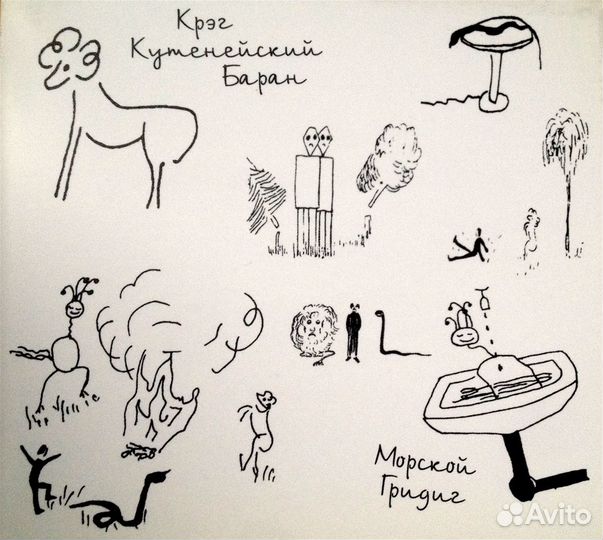 Крэг
Кутенейский
Баран
Морской
Гридиг
Avito